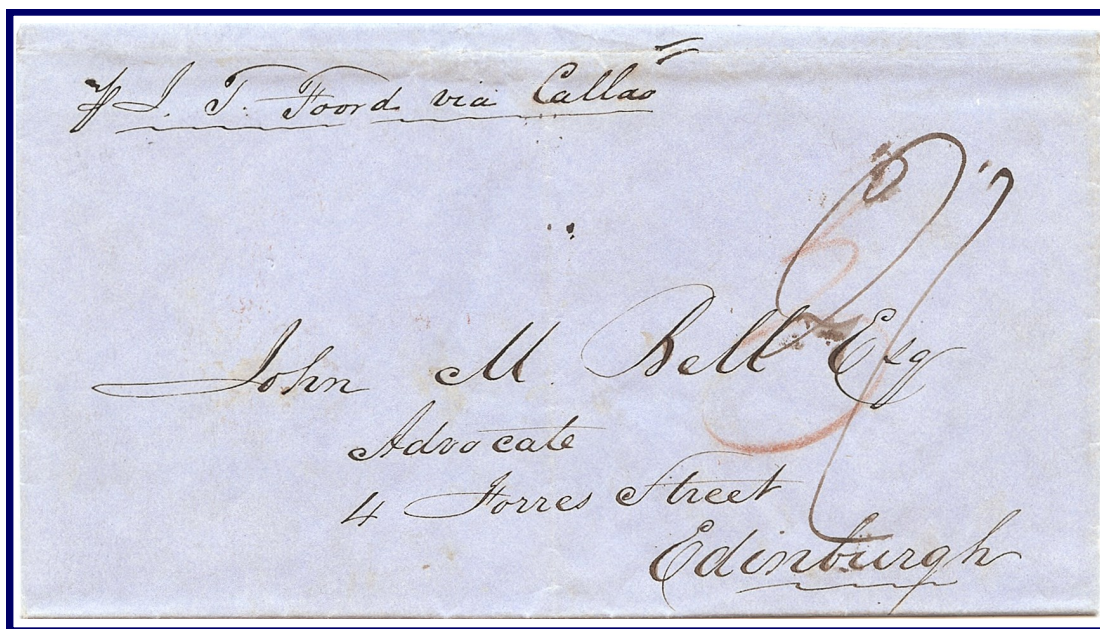 J. T. Foord via Callao
John M. Bell Esq
Advocate
4 Forres Street
Edinburgh